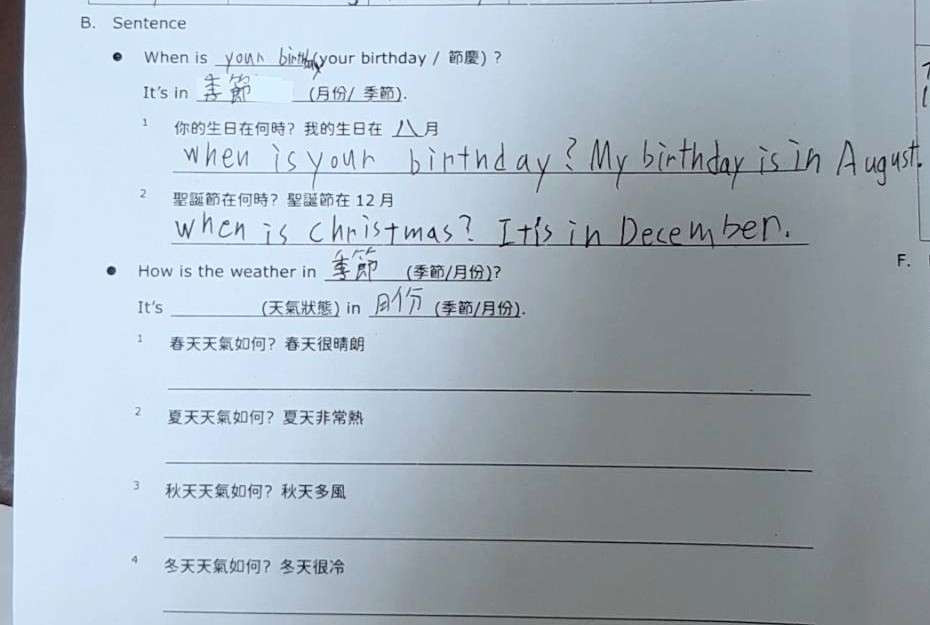 B. Sentence
When is your birthday (your birthday / 節慶) ?
It's in 季節 (月份/ 季節).
1 你的生日在何時? 我的生日在 八 月
when is your birthday? My birthday is in August.
2 聖誕節在何時? 聖誕節在 12 月
when is christmas? It's in December.
How is the weather in 季節 (季節/月份)?
It's ________ (天氣狀態) in 月份 (季節/月份).
1 春天天氣如何? 春天很晴朗
2 夏天天氣如何? 夏天非常熱
3 秋天天氣如何? 秋天多風
4 冬天天氣如何? 冬天很冷
F.